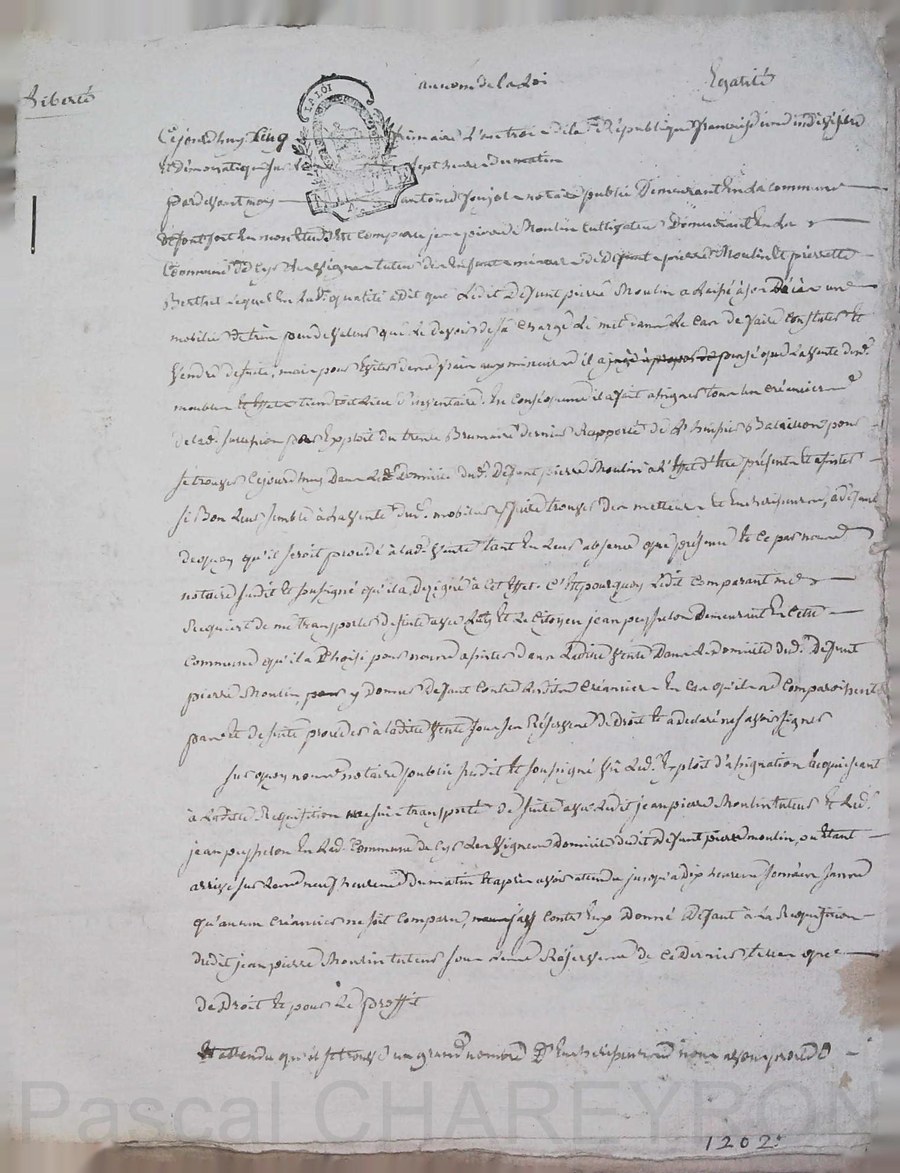 Liberté
au nom de la Loi
Egalité
LA LOI
Cejourdhuy Cinq frimaire L'an trois de la République française une indivisible
Et démocratique sur les sept heures du matin
pardevant moy antoine notaire public Demeurant En la commune
de En mon Etude Est comparu jean pierre Moulin cultivateur Demeurant En la
Commune de tuteur des Enfants mineurs de Défunts pierre Moulin Et pierrette
Berthet Lequel En lad. qualité a dit que Ledit Defunt pierre Moulin a Laissé à son Décès un
mobilier de très peu de valeur que Le devoir de sa charge Le met dans Le Cas de faire constater Et
Vendre de suite, mais pour Eviter des frais aux mineurs il a pensé que La vente dud.
meubles Et Effets tiendroit Lieu d'inventaire. En Conséquence il a fait assigner tous Les créanciers
de lad. succession par Exploit du trente Brumaire dernier Rapporté de pour
se trouver Cejourdhuy Dans Le domicile dud. Defunt pierre Moulin à L'effet d'être présents Et assister
si Bon Leur semble à La Vente dud. mobilier, faire trouver des metteurs Et Encherisseurs, à Defaut
de quoy qu'il seroit procédé à lad. Vente tant En Leur absence que présence Et ce par nous
notaire susdit Et soussigné qu'il a désigné à Cet Effet. C'est pourquoy Ledit Comparant me
Requiert de me transporter de suite avec Luy Et Le Citoyen jean peysselon Demeurant En Cette
Commune qu'il a Choisi pour nous assister dans Ladite Vente Dans Le Domicile dud. Defunt
pierre Moulin, pour y donner defaut Contre Lesdits Créanciers En Cas qu'ils ne Comparoissent
pas Et de suite proceder à Ladite Vente sous Les Réserves de droit Et a declaré ne savoir signer
Sur quoy nous notaire public susdit Et soussigné Vu Led. Exploit d'assignation acquiesçant
à Ladite Requisition me suis transporté de suite avec Ledit jean pierre Moulin tuteur Et Led.
jean peysselon En Lad. Commune de Domicile dudit défunt pierre moulin, ou Etant
arrivé sur Les neuf heures du matin Et après avoir attendu jusqu'a dix heures sonnées sans
qu'aucun créancier ne soit comparu, contre Eux donné Défaut à la Requisition
dudit jean pierre Moulin tuteur sous Les Réserves de ce dernier telles que
de Droit Et pour Le proffit
Et attendu qu'il se trouve un grand nombre D'Encherisseurs nous avons procédé
1202.
Pascal CHAREYRON